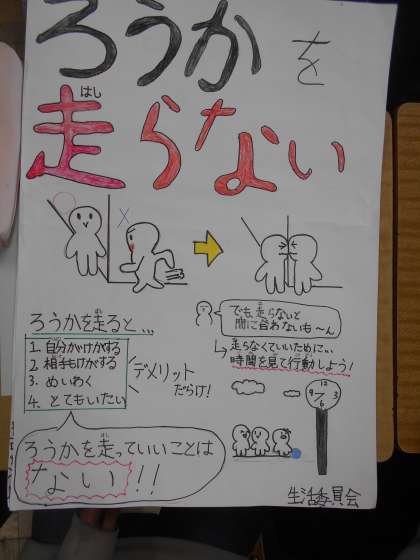 ろうかを
走らない
はし
○
×
ろうかを走ると...
1. 自分がけがする
2. 相手もけがする
3. めいわく
4. とてもいたい
デメリット
だらけ!
ろうかを走っていいことは
ない!!
でも走らないと
間に合わないも〜ん
走らなくていいために...
時間を見て行動しよう!
12
9
3
6
生活委員会